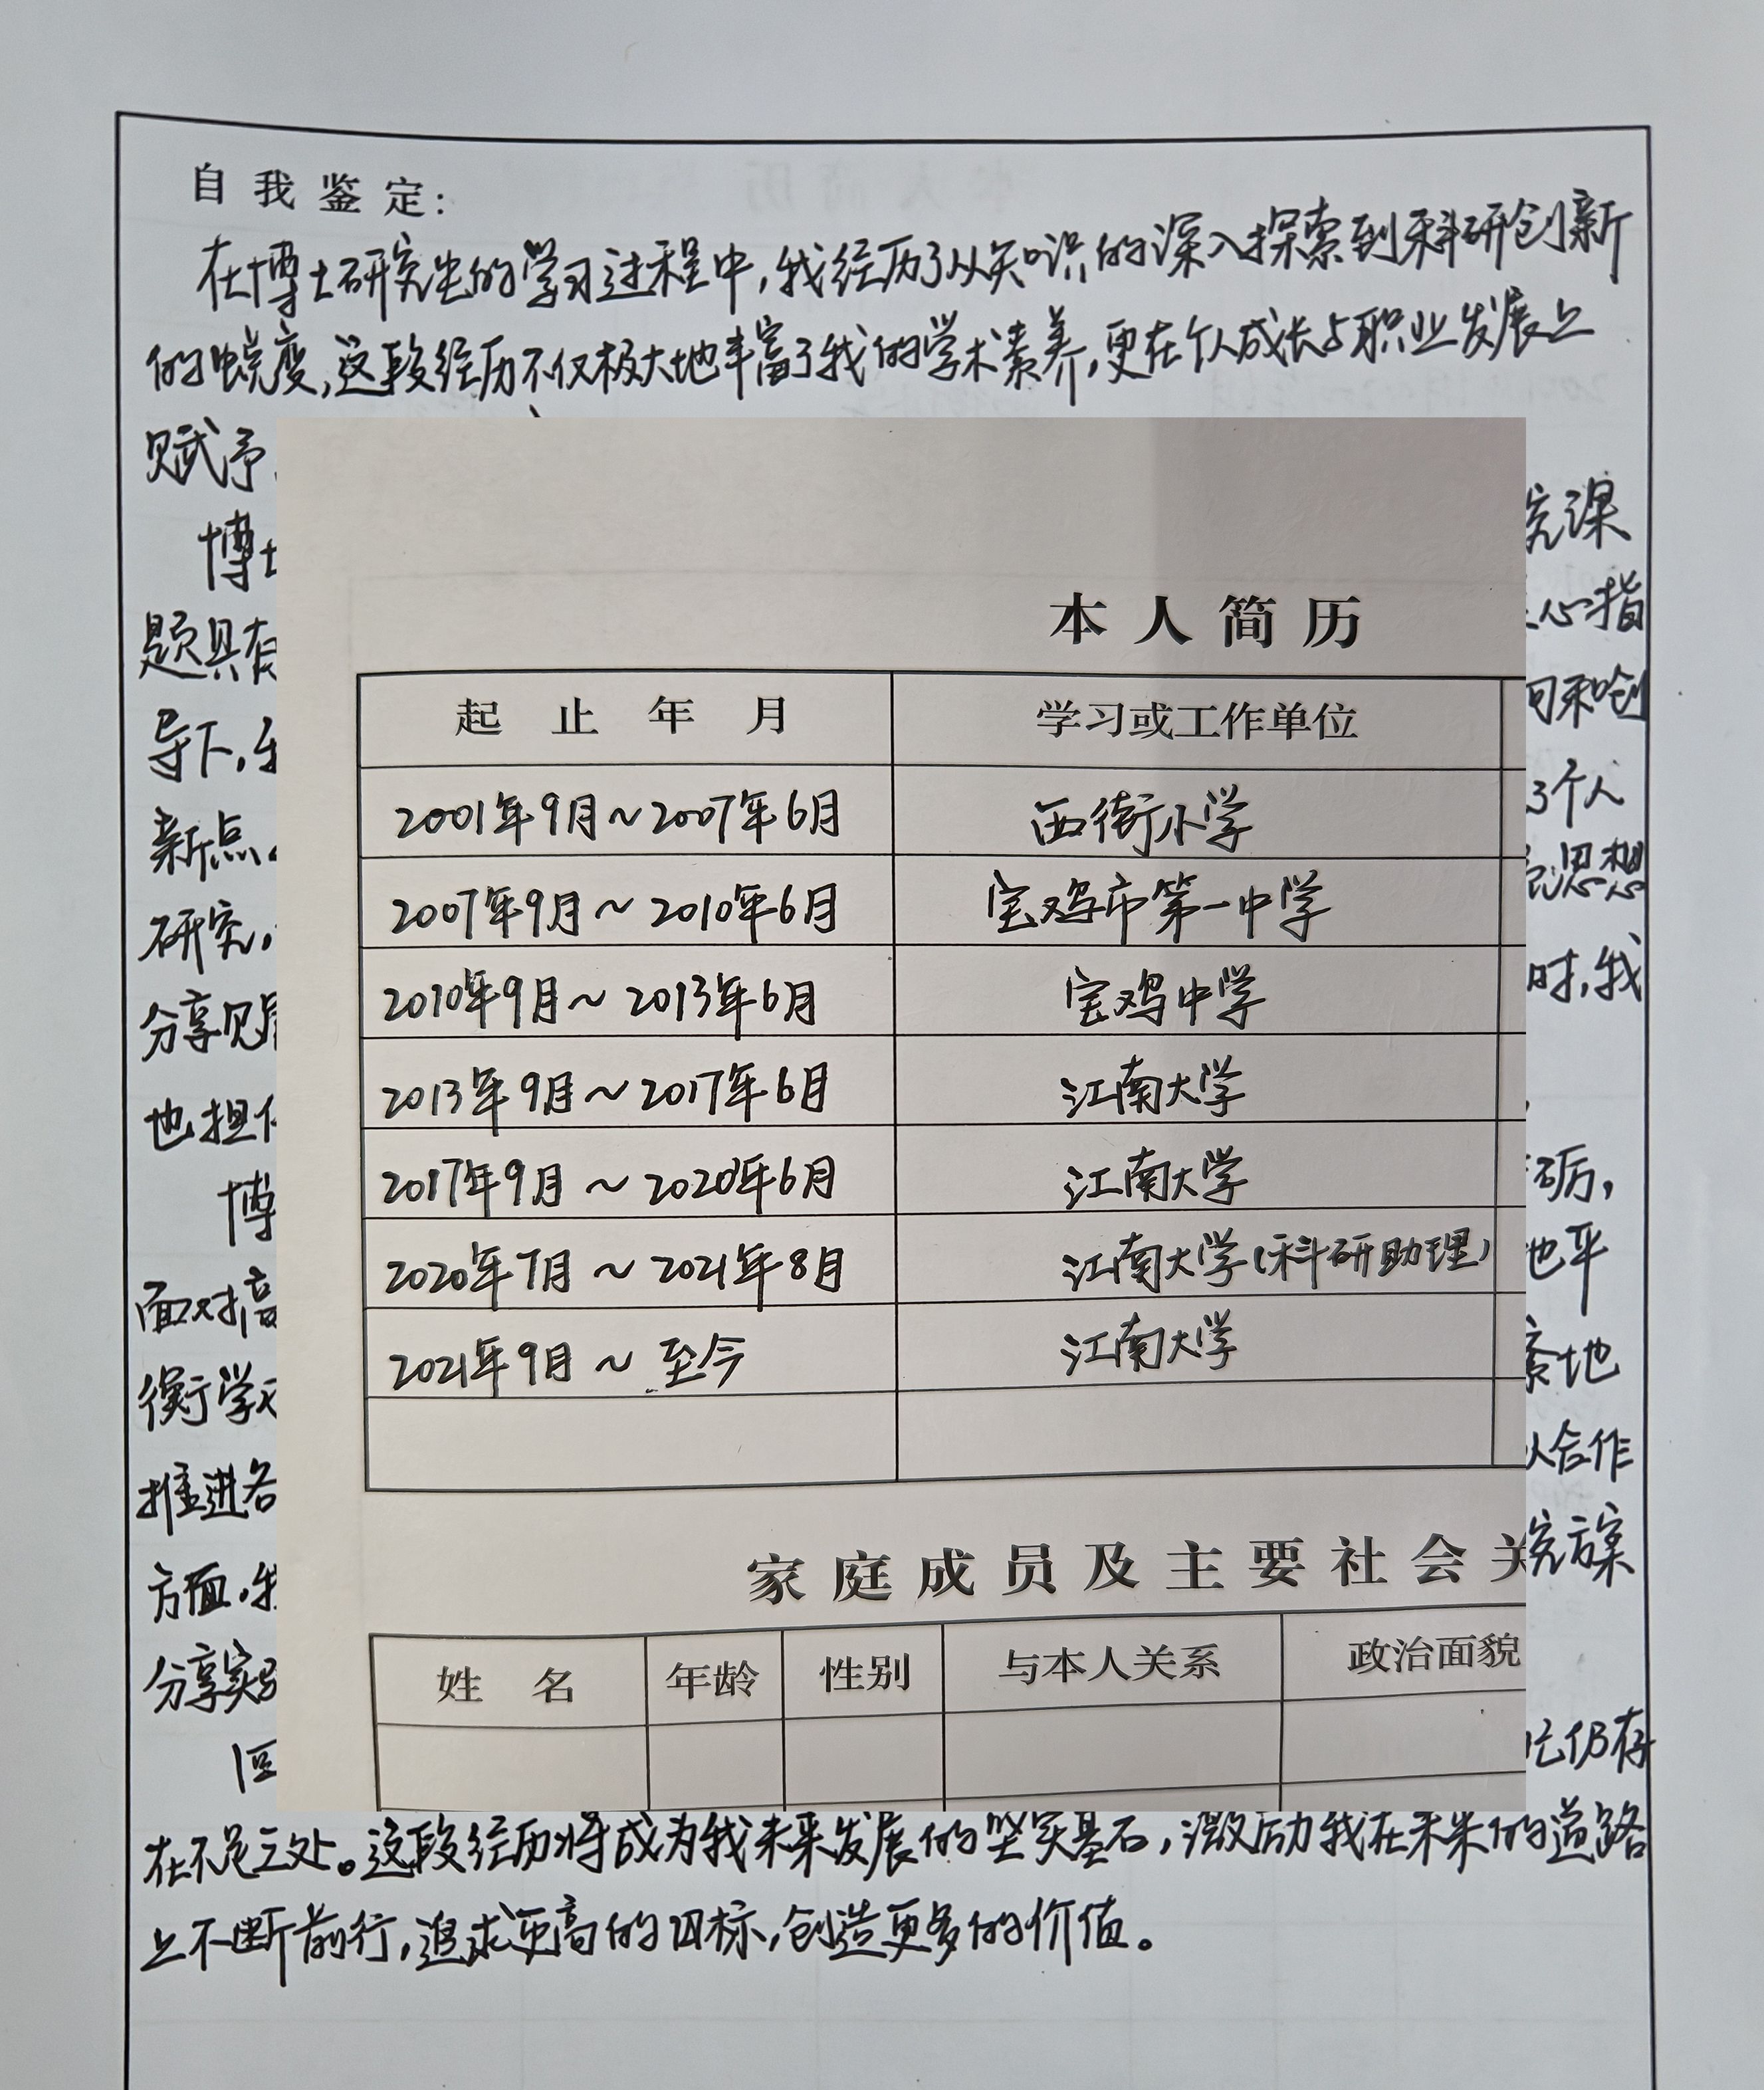 自我鉴定：
在博士研究生的学习过程中，我经历了从知识的深入探索到科研创新
的蜕变，这段经历不仅极大地丰富了我的学术素养，更在个人成长与职业发展上
赋予
博士
究课
题具有
心指
导下，
和创
新点
个人
研究，
思想
分享见
时，我
也担任
博
砺，
面对高
地平
衡学
地
推进各
合作
方面，我
究方案
分享实
回
己仍存
在不足之处。这段经历将成为我未来发展的坚实基石，激励我在未来的道路
上不断前行，追求更高的目标，创造更多的价值。
本人简历
起止年月 学习或工作单位
2001年9月～2007年6月 西街小学
2007年9月～2010年6月 宝鸡市第一中学
2010年9月～2013年6月 宝鸡中学
2013年9月～2017年6月 江南大学
2017年9月～2020年6月 江南大学
2020年7月～2021年8月 江南大学（科研助理）
2021年9月～至今 江南大学
家庭成员及主要社会关
姓名 年龄 性别 与本人关系 政治面貌